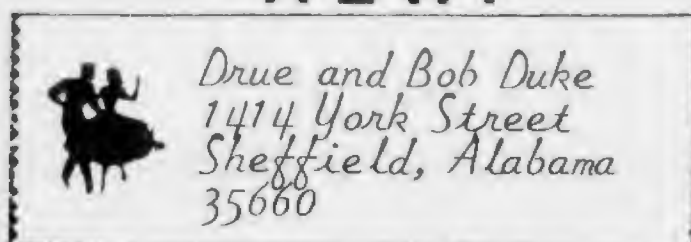 Drue and Bob Duke
1414 York Street
Sheffield, Alabama
35660